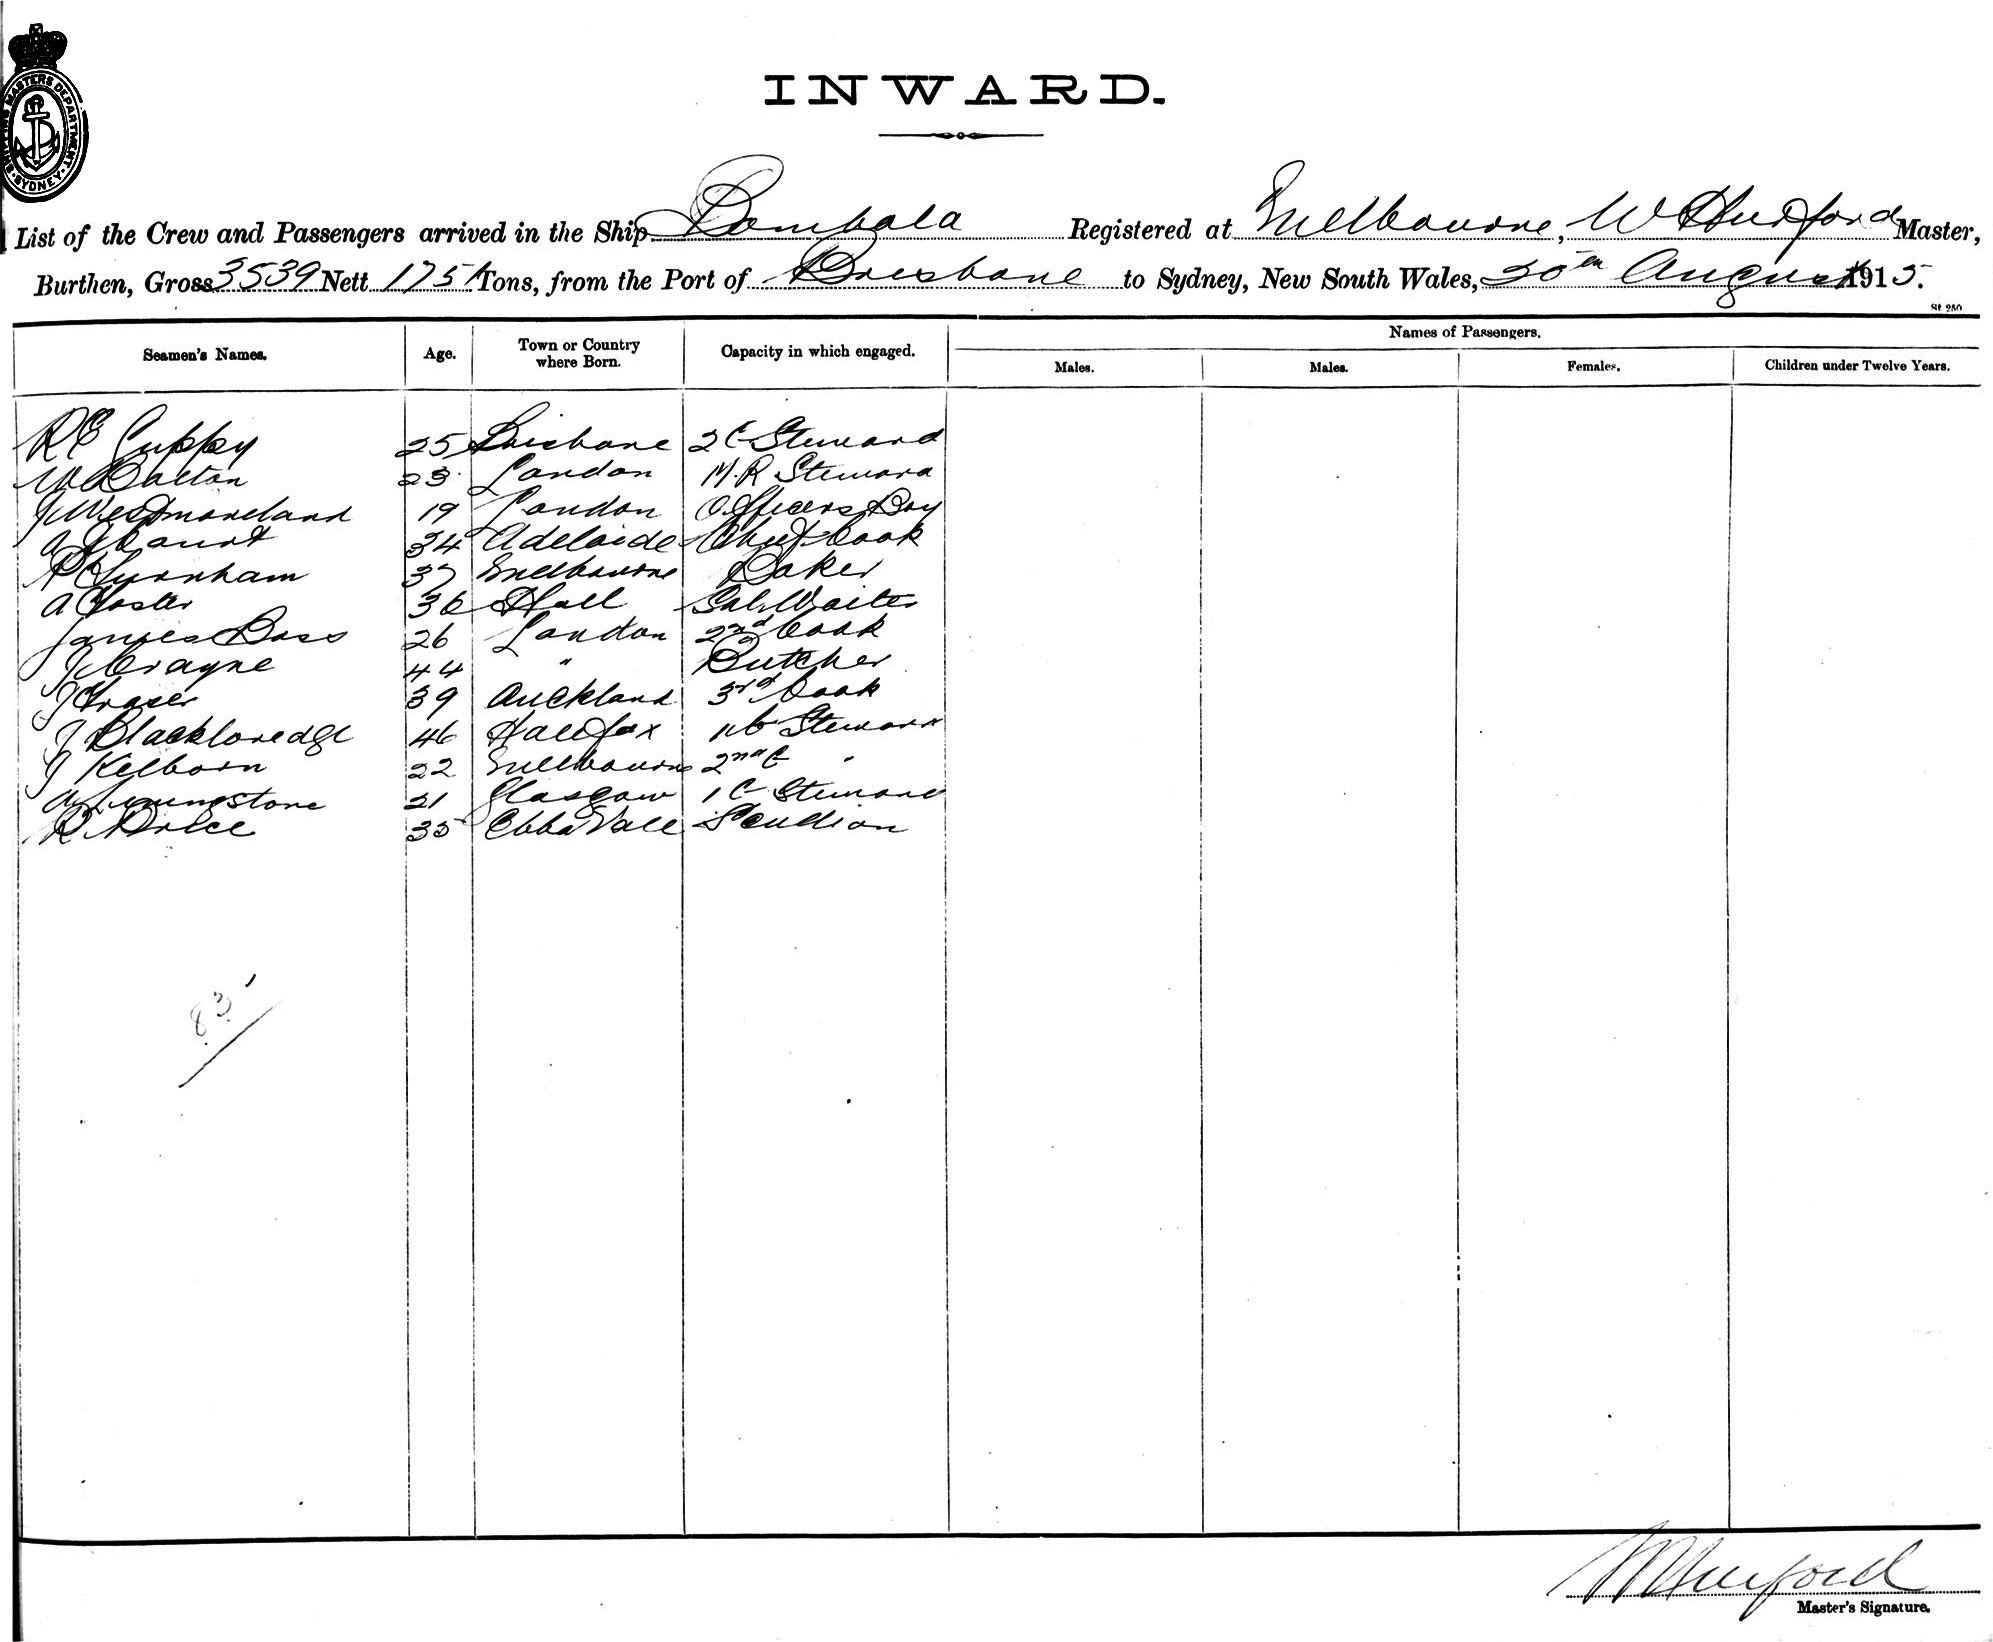 SHIPPING MASTERS DEPARTMENT
SYDNEY
INWARD.
List of the Crew and Passengers arrived in the Ship Bombala Registered at Melbourne, W Hurford Master,
Burthen, Gross 3539 Nett 1751 Tons, from the Port of Brisbane to Sydney, New South Wales, 30th August 1915.
St 250
Seamen's Names. Age. Town or Country where Born. Capacity in which engaged. Names of Passengers.
Males. Males. Females. Children under Twelve Years.
R E Cuppy 25 Brisbane 2 C Steward
W Dalton 23 London M.R Steward
J Westmoreland 19 London Officers Boy
A 34 Adelaide Chief Cook
P 37 Melbourne Baker
A Foster 36 Hull Sal. Waiter
James Bass 26 London 2nd Cook
J Crayne 44 " Butcher
J Fraser 39 Auckland 3rd Cook
J Blackloredge 46 Halifax 1 C Steward
J Kelborn 22 Melbourne 2nd C "
A Livingstone 21 Glasgow 1 C Steward
R Price 35 Ebba Vale Scullion
83
W Hurford
Master's Signature.